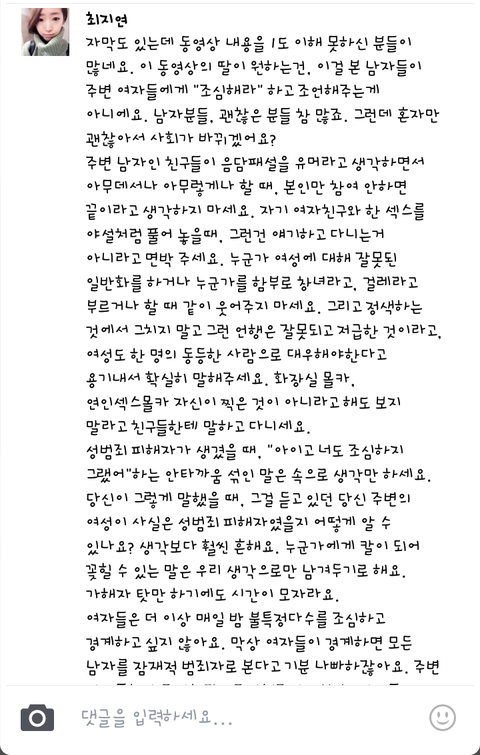 최지연
자막도 있는데 동영상 내용을 1도 이해 못하신 분들이
많네요. 이 동영상의 딸이 원하는건, 이걸 본 남자들이
주변 여자들에게 "조심해라" 하고 조언해주는게
아니에요. 남자분들, 괜찮은 분들 참 많죠. 그런데 혼자만
괜찮아서 사회가 바뀌겠어요?
주변 남자인 친구들이 음담패설을 유머라고 생각하면서
아무데서나 아무렇게나 할 때, 본인만 참여 안하면
끝이라고 생각하지 마세요. 자기 여자친구와 한 섹스를
야설처럼 풀어 놓을때, 그런건 얘기하고 다니는거
아니라고 면박 주세요. 누군가 여성에 대해 잘못된
일반화를 하거나 누군가를 함부로 창녀라고, 걸레라고
부르거나 할 때 같이 웃어주지 마세요. 그리고 정색하는
것에서 그치지 말고 그런 언행은 잘못되고 저급한 것이라고,
여성도 한 명의 동등한 사람으로 대우해야한다고
용기내서 확실히 말해주세요. 화장실 몰카,
연인섹스몰카 자신이 찍은 것이 아니라고 해도 보지
말라고 친구들한테 말하고 다니세요.
성범죄 피해자가 생겼을 때, "아이고 너도 조심하지
그랬어"하는 안타까움 섞인 말은 속으로 생각만 하세요.
당신이 그렇게 말했을 때, 그걸 듣고 있던 당신 주변의
여성이 사실은 성범죄 피해자였을지 어떻게 알 수
있나요? 생각보다 훨씬 흔해요. 누군가에게 칼이 되어
꽂힐 수 있는 말은 우리 생각으로만 남겨두기로 해요.
가해자 탓만 하기에도 시간이 모자라요.
여자들은 더 이상 매일 밤 불특정다수를 조심하고
경계하고 싶지 않아요. 막상 여자들이 경계하면 모든
남자를 잠재적 범죄자로 본다고 기분 나빠하잖아요. 주변
댓글을 입력하세요...